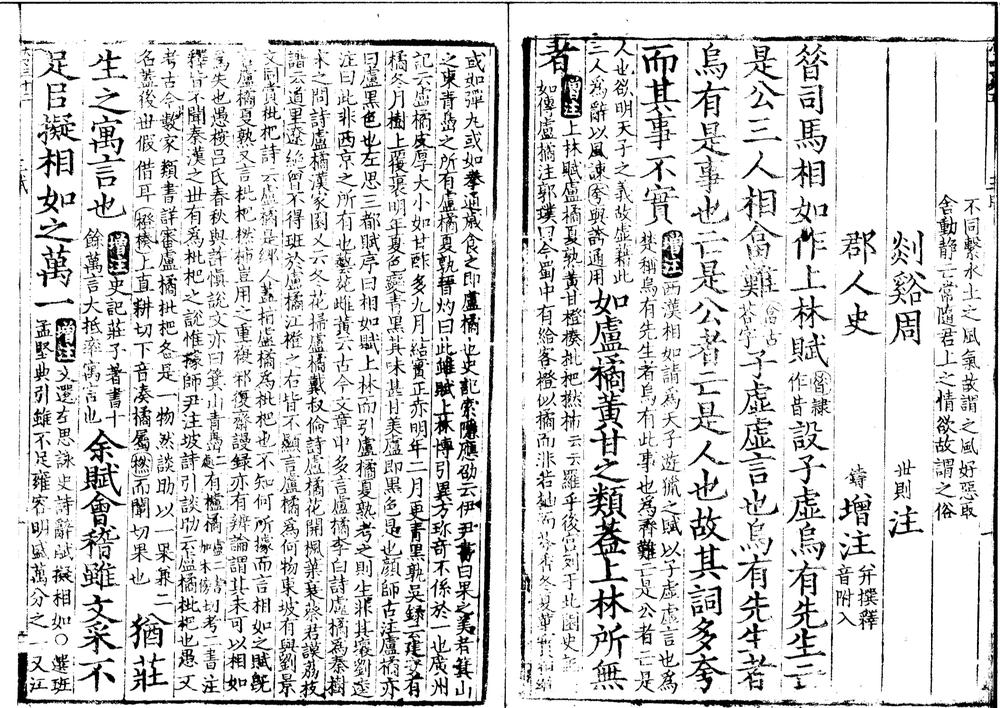 不同繫水土之風氣故謂之風好惡取
舍動静亡常隨君上之情欲故謂之俗
剡谿周 世則 注
郡人史 鑄 增注 并撰釋音附入
晉司馬相如作上林賦 晉隸作昔 設子虛烏有先生亡
是公三人相畣難 畣古荅字 子虛虛言也烏有先生者
烏有是事也亡是公者亡是人也故其詞多夸
而其事不實 增注 西漢相如請為天子遊獵之賦以子虛虛言也為
楚稱烏有先生者烏有此事也為齊難亡是公者亡是
人也欲明天子之義故虛藉此
三人為辭以風諫夸與誇通用 如盧橘黃甘之類蓋上林所無
者 增注 上林賦盧橘夏孰黃甘橙楱枇杷橪柿云云羅乎後宮列于北園史
如傳盧橘注郭璞曰今蜀中有給客橙似橘而非若柚而芬香冬夏華實相繼
或如彈丸或如拳通歲食之即盧橘也史記索隱應劭云伊尹書曰果之美者箕山
之東青鳥之所有盧橘夏孰晉灼曰此雖賦上林博引異方珍奇不係於一也廣州
記云盧橘皮厚大小如甘酢多九月結實正赤明年二月更青黑孰吳錄云建安有
橘冬月樹上覆裹明年夏色變青黑其味甚甘美盧即黑色是也顏師古注盧橘亦
曰盧黑色也左思三都賦序曰相如賦上林而引盧橘夏熟考之則生非其壤劉逵
注曰此非西京之所有也藝苑雌黃云古今文章中多言盧橘李白詩盧橘為秦樹
宋之問詩盧橘漢家園又云冬花掃盧橘戴叔倫詩盧橘花開楓葉衰蔡君謨荔枝
譜云道里遼絕曾不得班於盧橘江橙之右皆不顯言盧橘為何物東坡有與劉景
文同賞枇杷詩云盧橘是鄉人蓋指盧橘為枇杷也不知何所據而言相如之賦既
言盧橘夏熟又言枇杷橪柿豈用之重複邪復齋謾錄亦有辨論謂其未可以相如
為失也愚按呂氏春秋與許慎說文亦曰箕山青鳥二處有櫨橘 切考二書注
釋皆不聞秦漢之世有為枇杷之說惟 師尹注坡詩引談助云盧橘枇杷也愚又
考古今數家類書詳審盧橘枇杷各是一物然談助以一果兼二
名蓋後世假借耳 橙楱上直耕切下音湊橘屬橪而闡切果也 猶莊
生之寓言也 增注 史記莊子著書十
餘萬言大抵率寓言也 余賦會稽雖文采不
足㠯擬相如之萬一 增注 文選左思詠史詩辭賦擬相如○選班
孟堅典引雖不足雍容明盛萬分之一又江